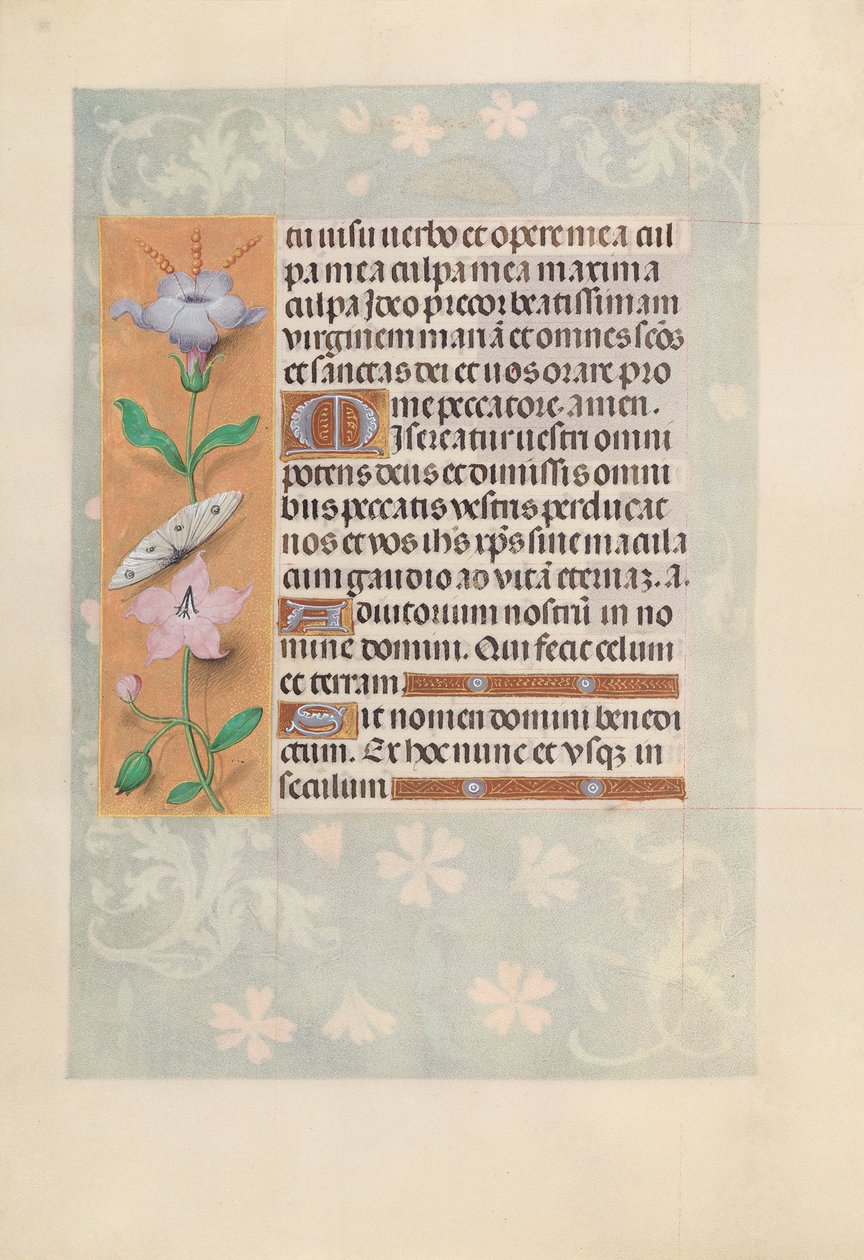 tu uisu uerbo et opere mea cul
pa mea culpa mea maxima
culpa Ideo precor beatissimam
virginem mariā et omnes scōs
et sanctas dei et uos orare pro
me peccatore. amen.
Misereatur uestri omni
potens deus et dimissis omni
bus peccatis vestris perducat
nos et vos ih's xp̄s sine macula
cum gaudio ad vitā eternaz. A.
Adiutorium nostrū in no
mine domini. Qui fecit celum
et terram
Sit nomen domini benedi
ctum. Ex hoc nunc et vsqz in
seculum